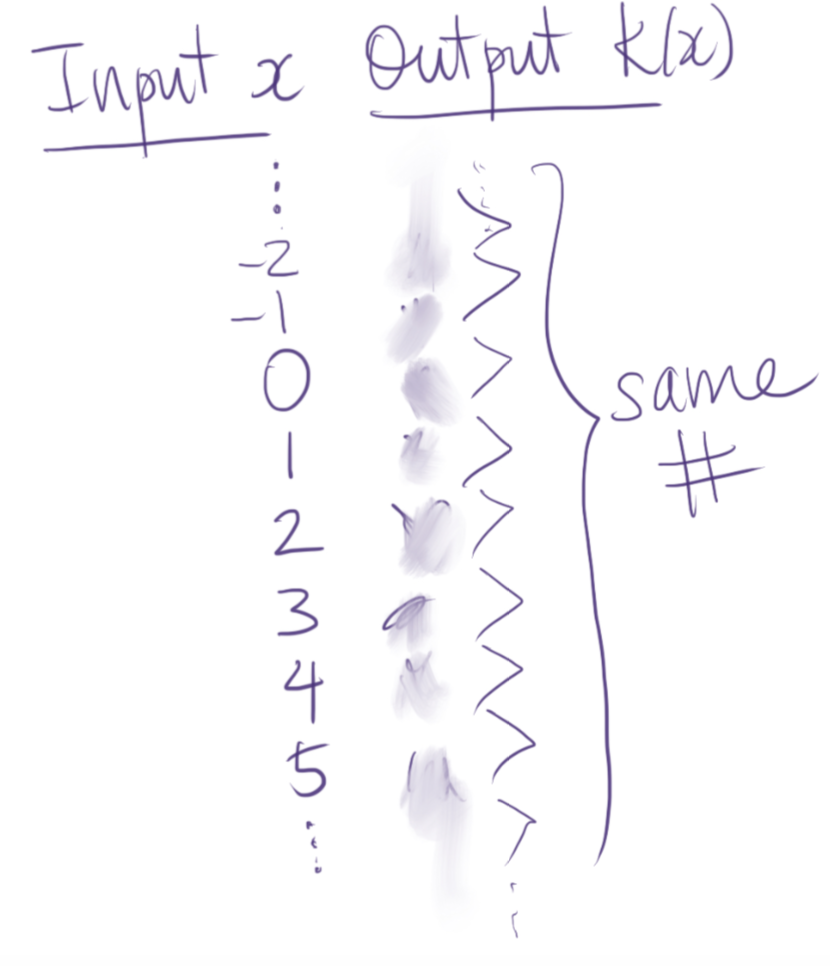 Input x Output K(x)
⋮
-2
-1
0
1
2
3
4
5
⋮
same
#